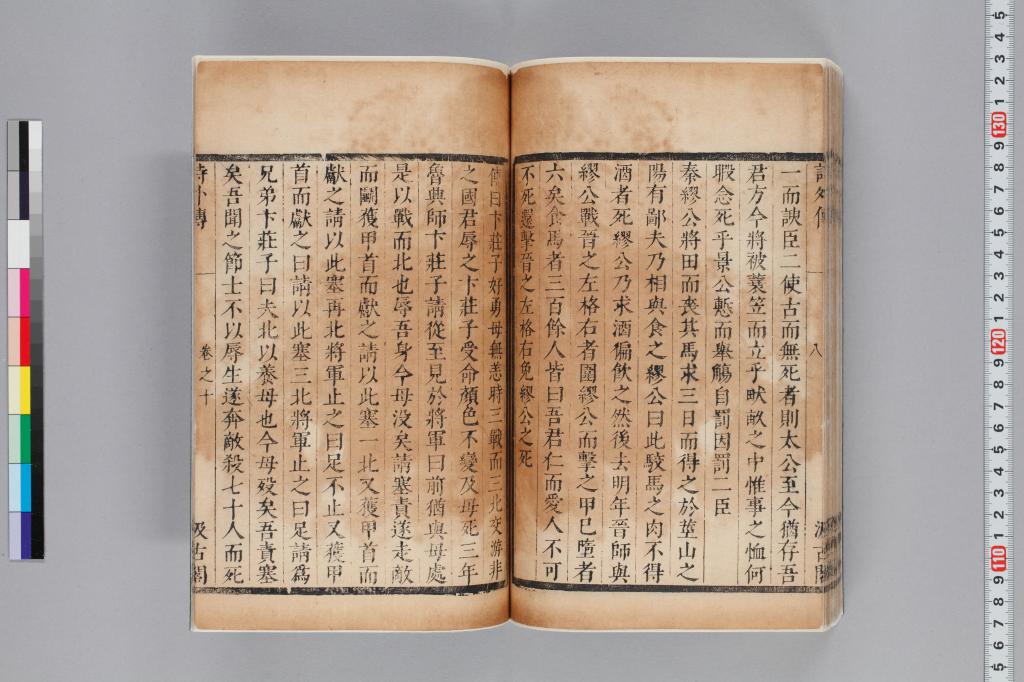 詩外傳
八
汲古閣
一而諛臣二使古而無死者則太公至今猶存吾
君方今將被蓑笠而立乎畎畝之中惟事之恤何
暇念死乎景公慙而舉觴自罰因罰二臣
秦繆公將田而喪其馬求三日而得之於莖山之
陽有鄙夫乃相與食之繆公曰此駮馬之肉不得
酒者死繆公乃求酒徧飲之然後去明年晉師與
繆公戰晉之左格右者圍繆公而擊之甲已墮者
六矣食馬者三百餘人皆曰吾君仁而愛人不可
不死還擊晉之左格右免繆公之死
傳曰卞莊子好勇母無恙時三戰而三北交游非
之國君辱之卞莊子受命顏色不變及母死三年
魯興師卞莊子請從至見於將軍曰前猶與母處
是以戰而北也辱吾身今母没矣請塞責遂走敵
而鬭獲甲首而獻之請以此塞一北又獲甲首而
獻之請以此塞再北將軍止之曰足不止又獲甲
首而獻之曰請以此塞三北將軍止之曰足請爲
兄弟卞莊子曰夫北以養母也今母殁矣吾責塞
矣吾聞之節士不以辱生遂奔敵殺七十人而死
詩外傳
卷之十
汲古閣